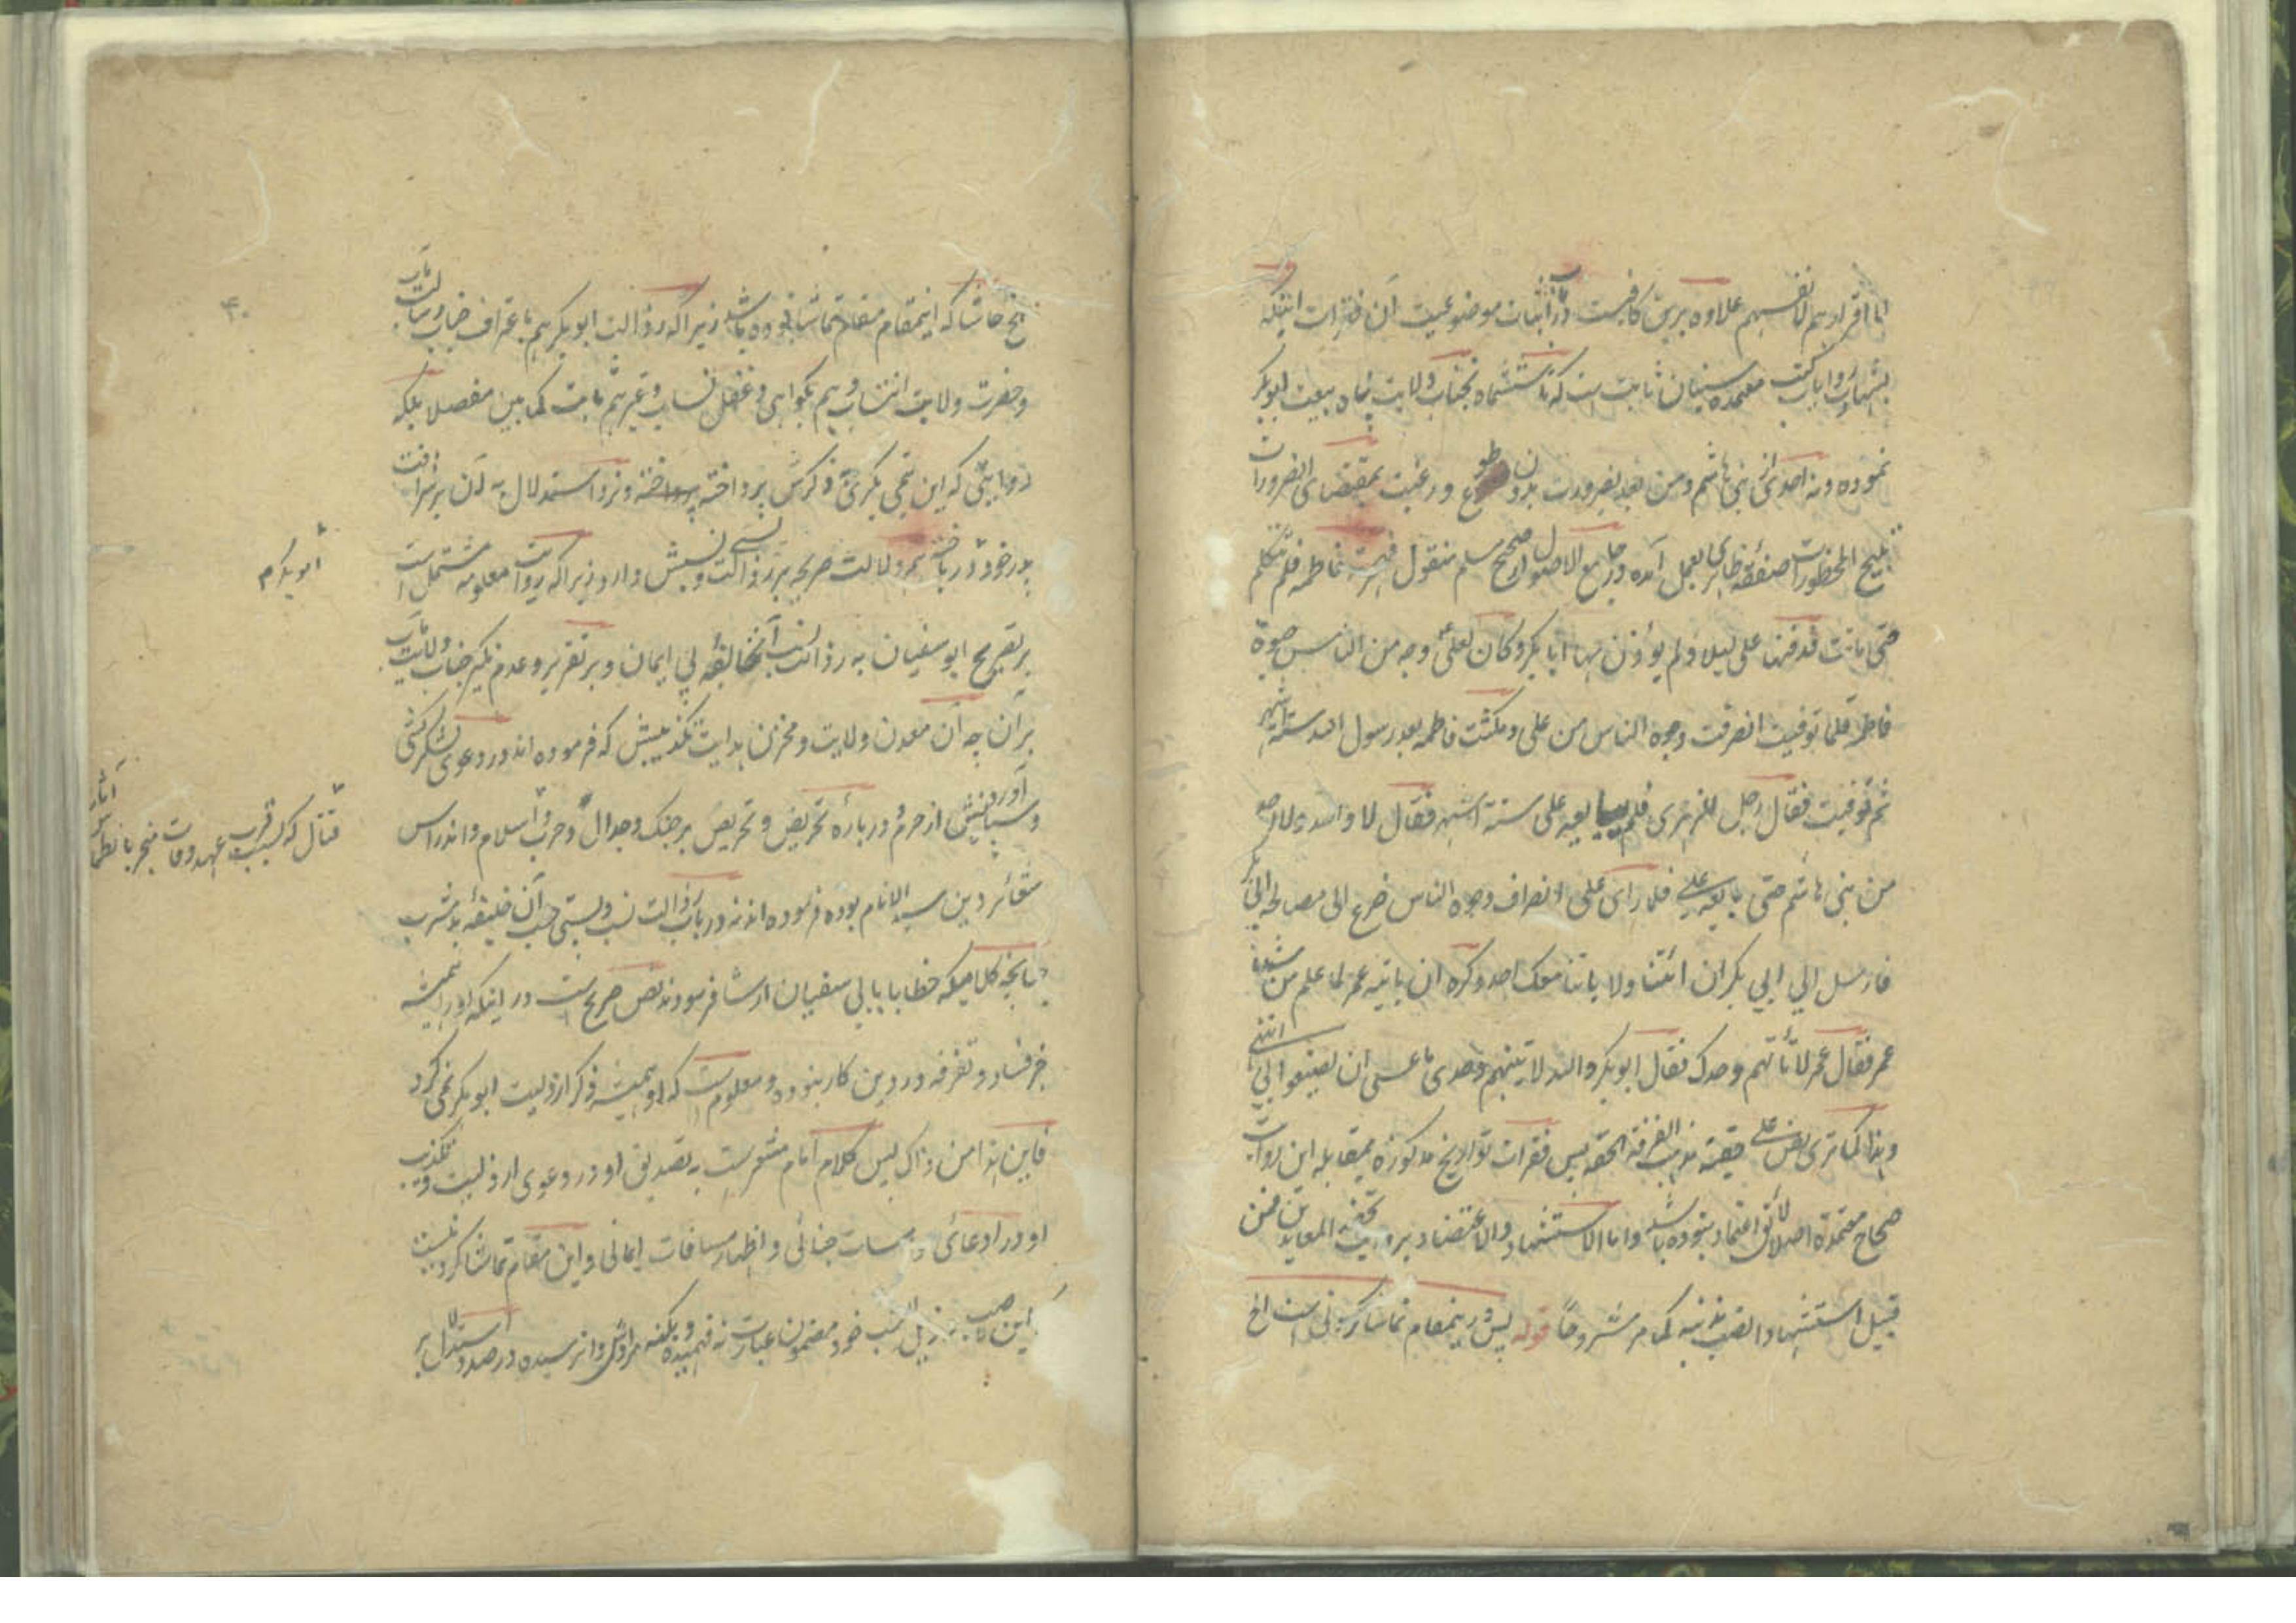 اما اقرارهم لانفسهم علاوه برین کافیست در اثبات موضوعیت آن فقرات اینکه
بشهادت روایات کتب معتمده سنیان ثابت است که تا ششماه نجناب ولایت پناه بیعت ابوبکر
نموده و نه احدی از بنی هاشم و من بعد بضرورت بدون طوع و رغبت بمقتضای الضرورات
تبیح المحظورات صفقه ظاهری بعمل آمده در جامع الاصول از صحیح مسلم منقول فهجرته فاطمه فلم تتکلم
حتی ماتت فدفنها علی لیلا و لم یؤذن بها ابا بکر و کان لعلی وجه من الناس حیوة
فاطمة فلما توفیت انصرفت وجوه الناس من علی و مکثت فاطمه بعد رسول الله ستة اشهر
ثم توفیت فقال رجل للزهری فلم یبایعه علی ستة اشهر فقال لا والله ولا احد
من بنی هاشم حتی بایعه علی فلما رای علی انصراف وجوه الناس ضرع الی مصالحة ابی بکر
فارسل الی ابی بکر ان ائتنا ولا یاتنا معک احد و کره ان یاتیه عمر لما علم من شدة
عمر فقال عمر لا تأتهم وحدک فقال ابوبکر والله لاتینهم وحدی ما عسی ان یصنعوا بی انتهی
و هذا کما تری نص علی حقیقة مذهب الفرقة الحقه پس فقرات تواریخ مذکوره بمقابله این روایات
صحاح معتمدة اصلا لائق اعتماد نبوده باشد و اما الاستشهاد والاعتضاد بروایت تحفه المعاندین فمن
قبیل استشهاد الثعلب بذنبه کما مر مشروحاً قوله پس درینمقام تماشا کردنی است الخ
۴۰
حاشا که اینمقام مقام تماشا بوده باشد زیرا که رذالت ابوبکر هم باعتراف جناب رسالت مآب
و حضرت ولایت انتساب هم بگواهی دغفل نساب و غیرهم ثابت کما بین مفصلا بلکه
روایتی که این بکری ذکرش پرداخته و نرد استدلال به آن بر شرافت
پدر خود در باخته هم دلالت صریحه بر رذالت نسبش دارد زیرا که روایت معلومه مشتمل است
بر تصریح ابوسفیان به رذالت نسب آنخالفه بی ایمان و بر تقریر و عدم نکیر جناب ولایت مآب
بر آن چه آن معدن ولایت و مخزن هدایت تکذیبش که فرموده اند در دعوی لشکر کشی
و سپاه آوردنش از حرم و در باره تحریض و تحریص بر جنک و جدال و حرب اسلام و اندراس
شعائر دین سید الانام بوده فرموده اند نه در باب رذالت نسب و پستی حسب آن خلیفه بد مشرب
چنانچه کلامیکه خطابا بابی سفیان ارشاد فرمودند نص صریح است در اینکه او را همیشه
جز فساد و تفرفه در دین کار نبوده و معلوم است که او همیشه ذکر ارذلیت ابوبکر نمی کرد
فاین هذا من ذاک پس کلام امام مشعر است به تصدیق او در دعوی ارذلیت و تکذیب
او در ادعای و اظهار مسافات ایمانی و این مقام تماشا کرد نیست
این رذیل النسب خود مضمون عبارت نه فهمیده و بکنه مرامش وا نرسیده در صدد استدلال بر
ابوبکرم
قتال که بسبب قرب عهد وفات منجر بانطماس آثار